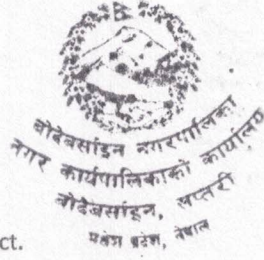 बोदेबर्साइन नगरपालिका
नगर कार्यपालिकाको कार्यालय
बोदेबर्साइन, सप्तरी
प्रदेश, नेपाल
ct.